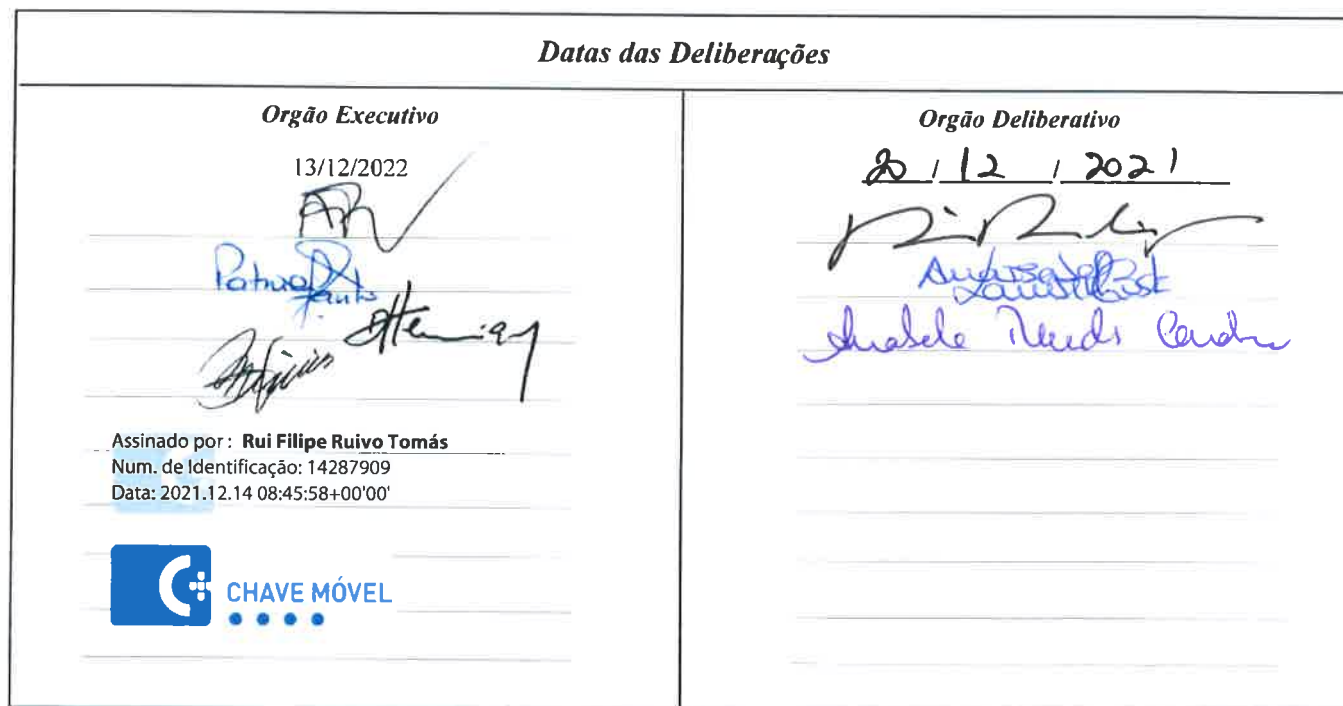 Datas das Deliberações
Orgão Executivo
13/12/2022
Assinado por : Rui Filipe Ruivo Tomás
Num. de Identificação: 14287909
Data: 2021.12.14 08:45:58+00'00'
CHAVE MÓVEL
Orgão Deliberativo
20 / 12 / 2021